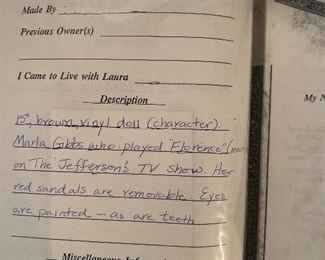 Made By
Previous Owner(s)
I Came to Live with Laura
Description
15", brown, vinyl doll (character).
Marla Gibbs who played "Florence"
on The Jefferson's TV Show. Her
red sandals are removable. Eyes
are painted - as are teeth
Miscellaneous
My N